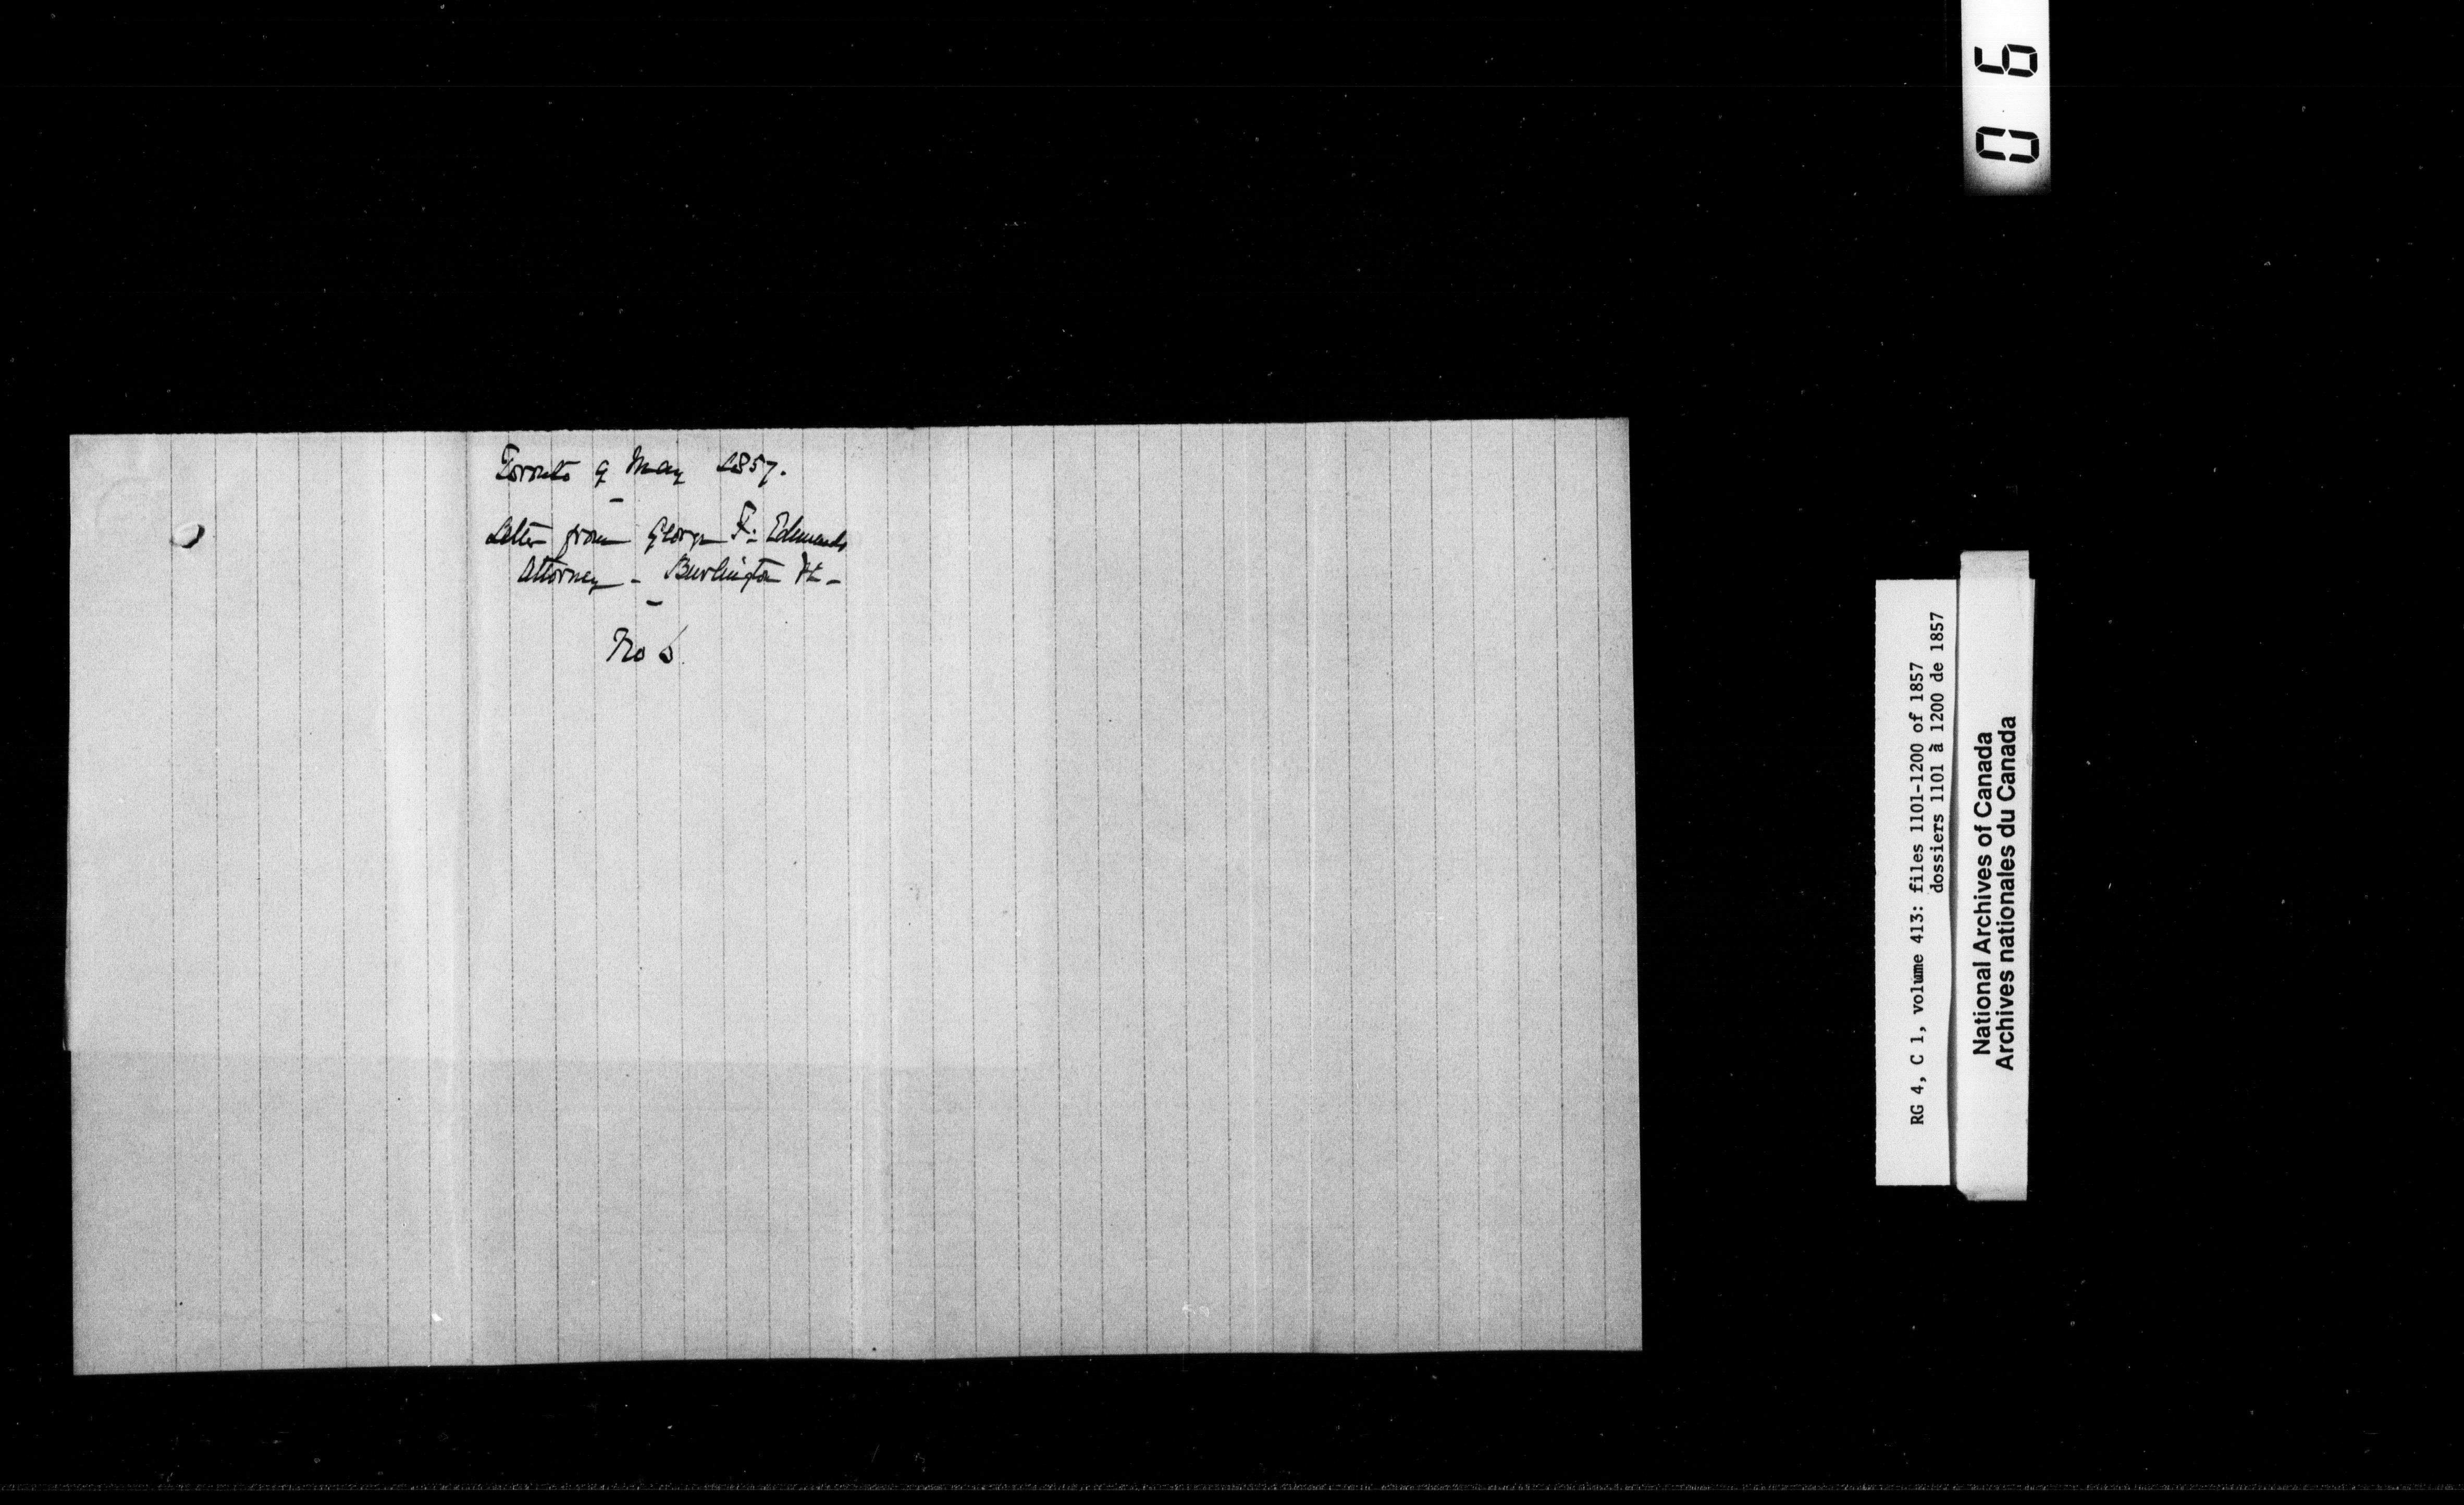 Toronto 9 May 1857.
Letter from George F. Edmunds
Attorney - Burlington Vt -
No 6
06
RG 4, C 1, volume 413: files 1101-1200 of 1857
dossiers 1101 à 1200 de 1857
National Archives of Canada
Archives nationales du Canada